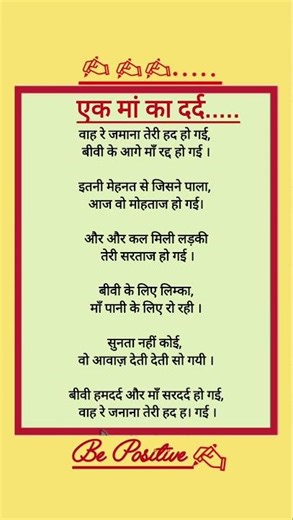 ✍✍✍.....
एक मां का दर्द.....
वाह रे जमाना तेरी हद हो गई,
बीवी के आगे माँ रद्द हो गई ।
इतनी मेहनत से जिसने पाला,
आज वो मोहताज हो गई।
और और कल मिली लड़की
तेरी सरताज हो गई ।
बीवी के लिए लिम्का,
माँ पानी के लिए रो रही ।
सुनता नहीं कोई,
वो आवाज़ देती देती सो गयी ।
बीवी हमदर्द और माँ सरदर्द हो गई,
वाह रे जनाना तेरी हद ह। गई ।
Be Positive ✍